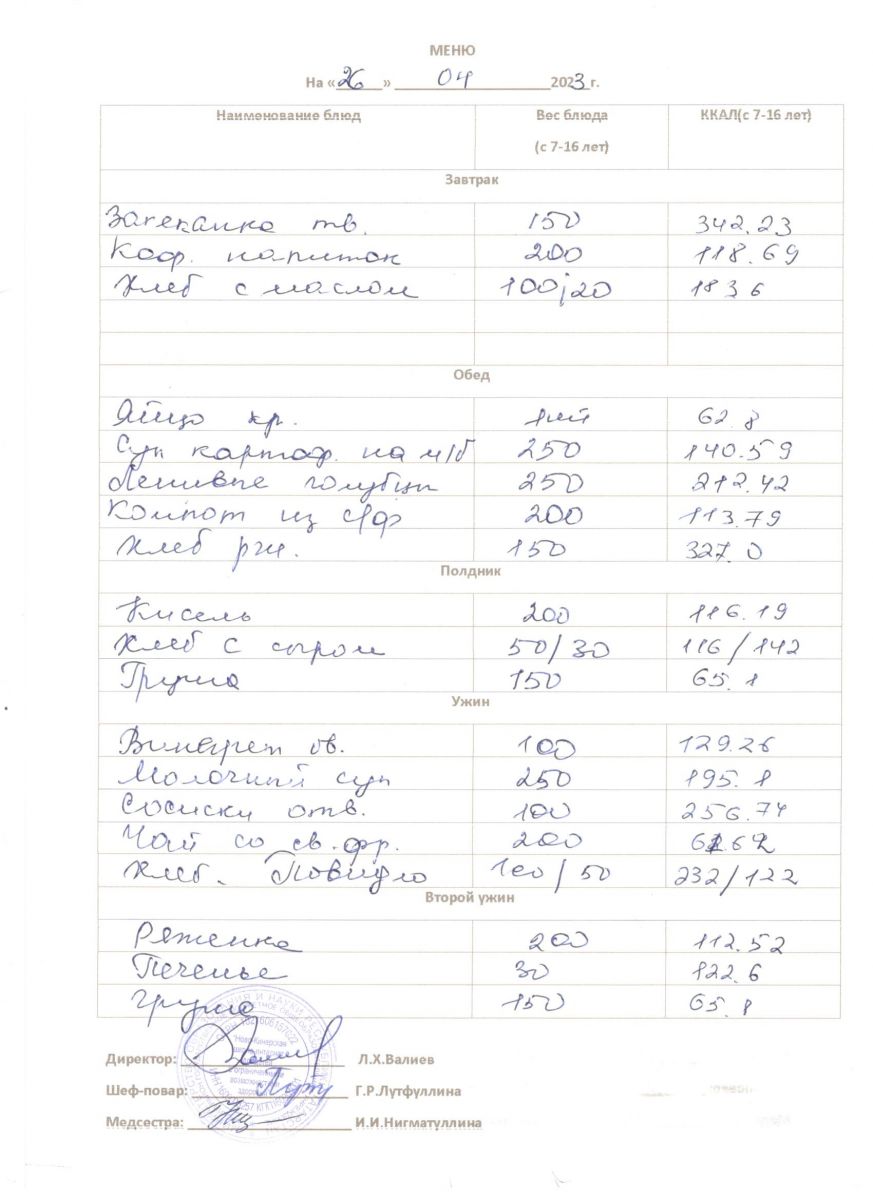 МЕНЮ
На «26» 04 2023 г.
Наименование блюд Вес блюда (с 7-16 лет) ККАЛ(с 7-16 лет)
Завтрак
Запеканка тв. 150 342.23
Коф. напиток 200 118.69
Хлеб с маслом 100/20 183 6
Обед
Яйцо 1шт 62.8
Суп картоф. на м/б 250 140.59
Ленивые голубцы 250 212.42
Компот из с/ф 200 113.79
Хлеб рж. 150 327.0
Полдник
Кисель 200 116.19
Хлеб с сыром 50/30 116/142
Груша 150 65.1
Ужин
Винегрет ов. 100 129.26
Молочный суп 250 195.1
Сосиски отв. 100 256.74
Чай со св. фр. 200
Хлеб. Повидло 100/50 232/122
Второй ужин
Ряженка 200 112.52
Печенье 30 122.6
Груша 150 65.1
Директор: Л.Х.Валиев
Шеф-повар: Г.Р.Лутфуллина
Медсестра: И.И.Нигматуллина